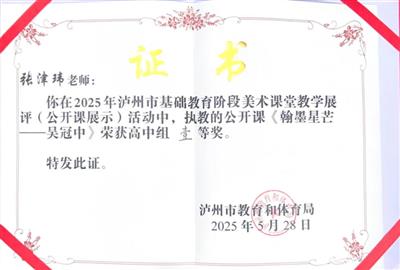 证书
张津玮老师：
你在2025年泸州市基础教育阶段美术课堂教学展
评（公开课展示）活动中，执教的公开课《翰墨星芒
——吴冠中》荣获高中组 壹 等奖。
特发此证。
泸州市教育和体育局
2025年5月28日